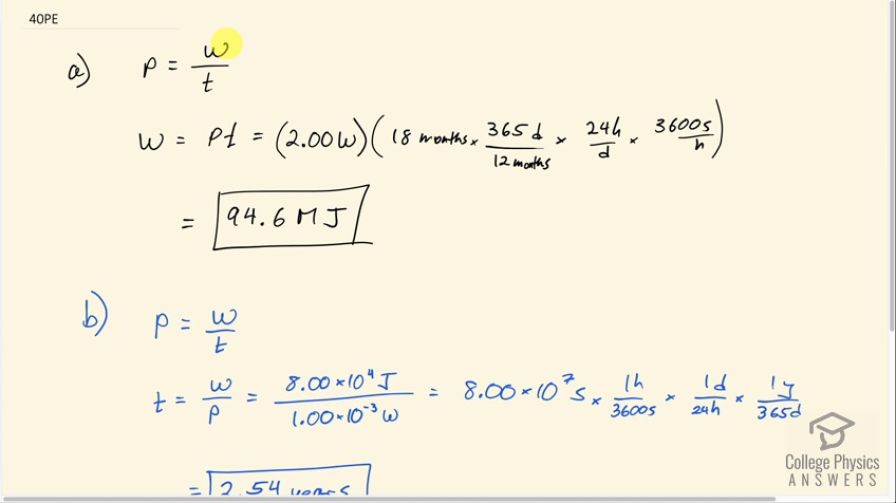 40PE
a) P = W/t
W = Pt = (2.00W)(18 months × 365d/12 months × 24h/d × 3600s/h)
= 94.6 MJ
b) P = W/t
t = W/P = 8.00×10⁴ J/1.00×10⁻³ W = 8.00×10⁷ s × 1h/3600s × 1d/24h × 1y/365d
= 2.54 years
College Physics
ANSWERS